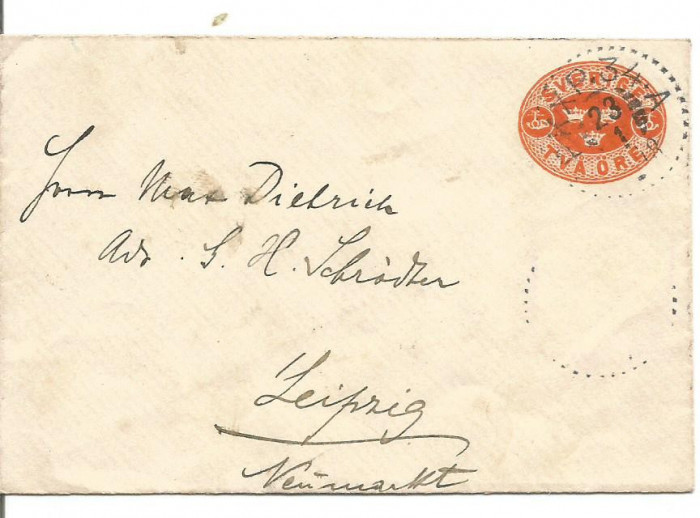 SVERIGE
TVÅ ÖRE
PKXP. 34. A
23
1
Herrn Max Dietrich
Adr. G. H. Schrödter
Leipzig
Neumarkt